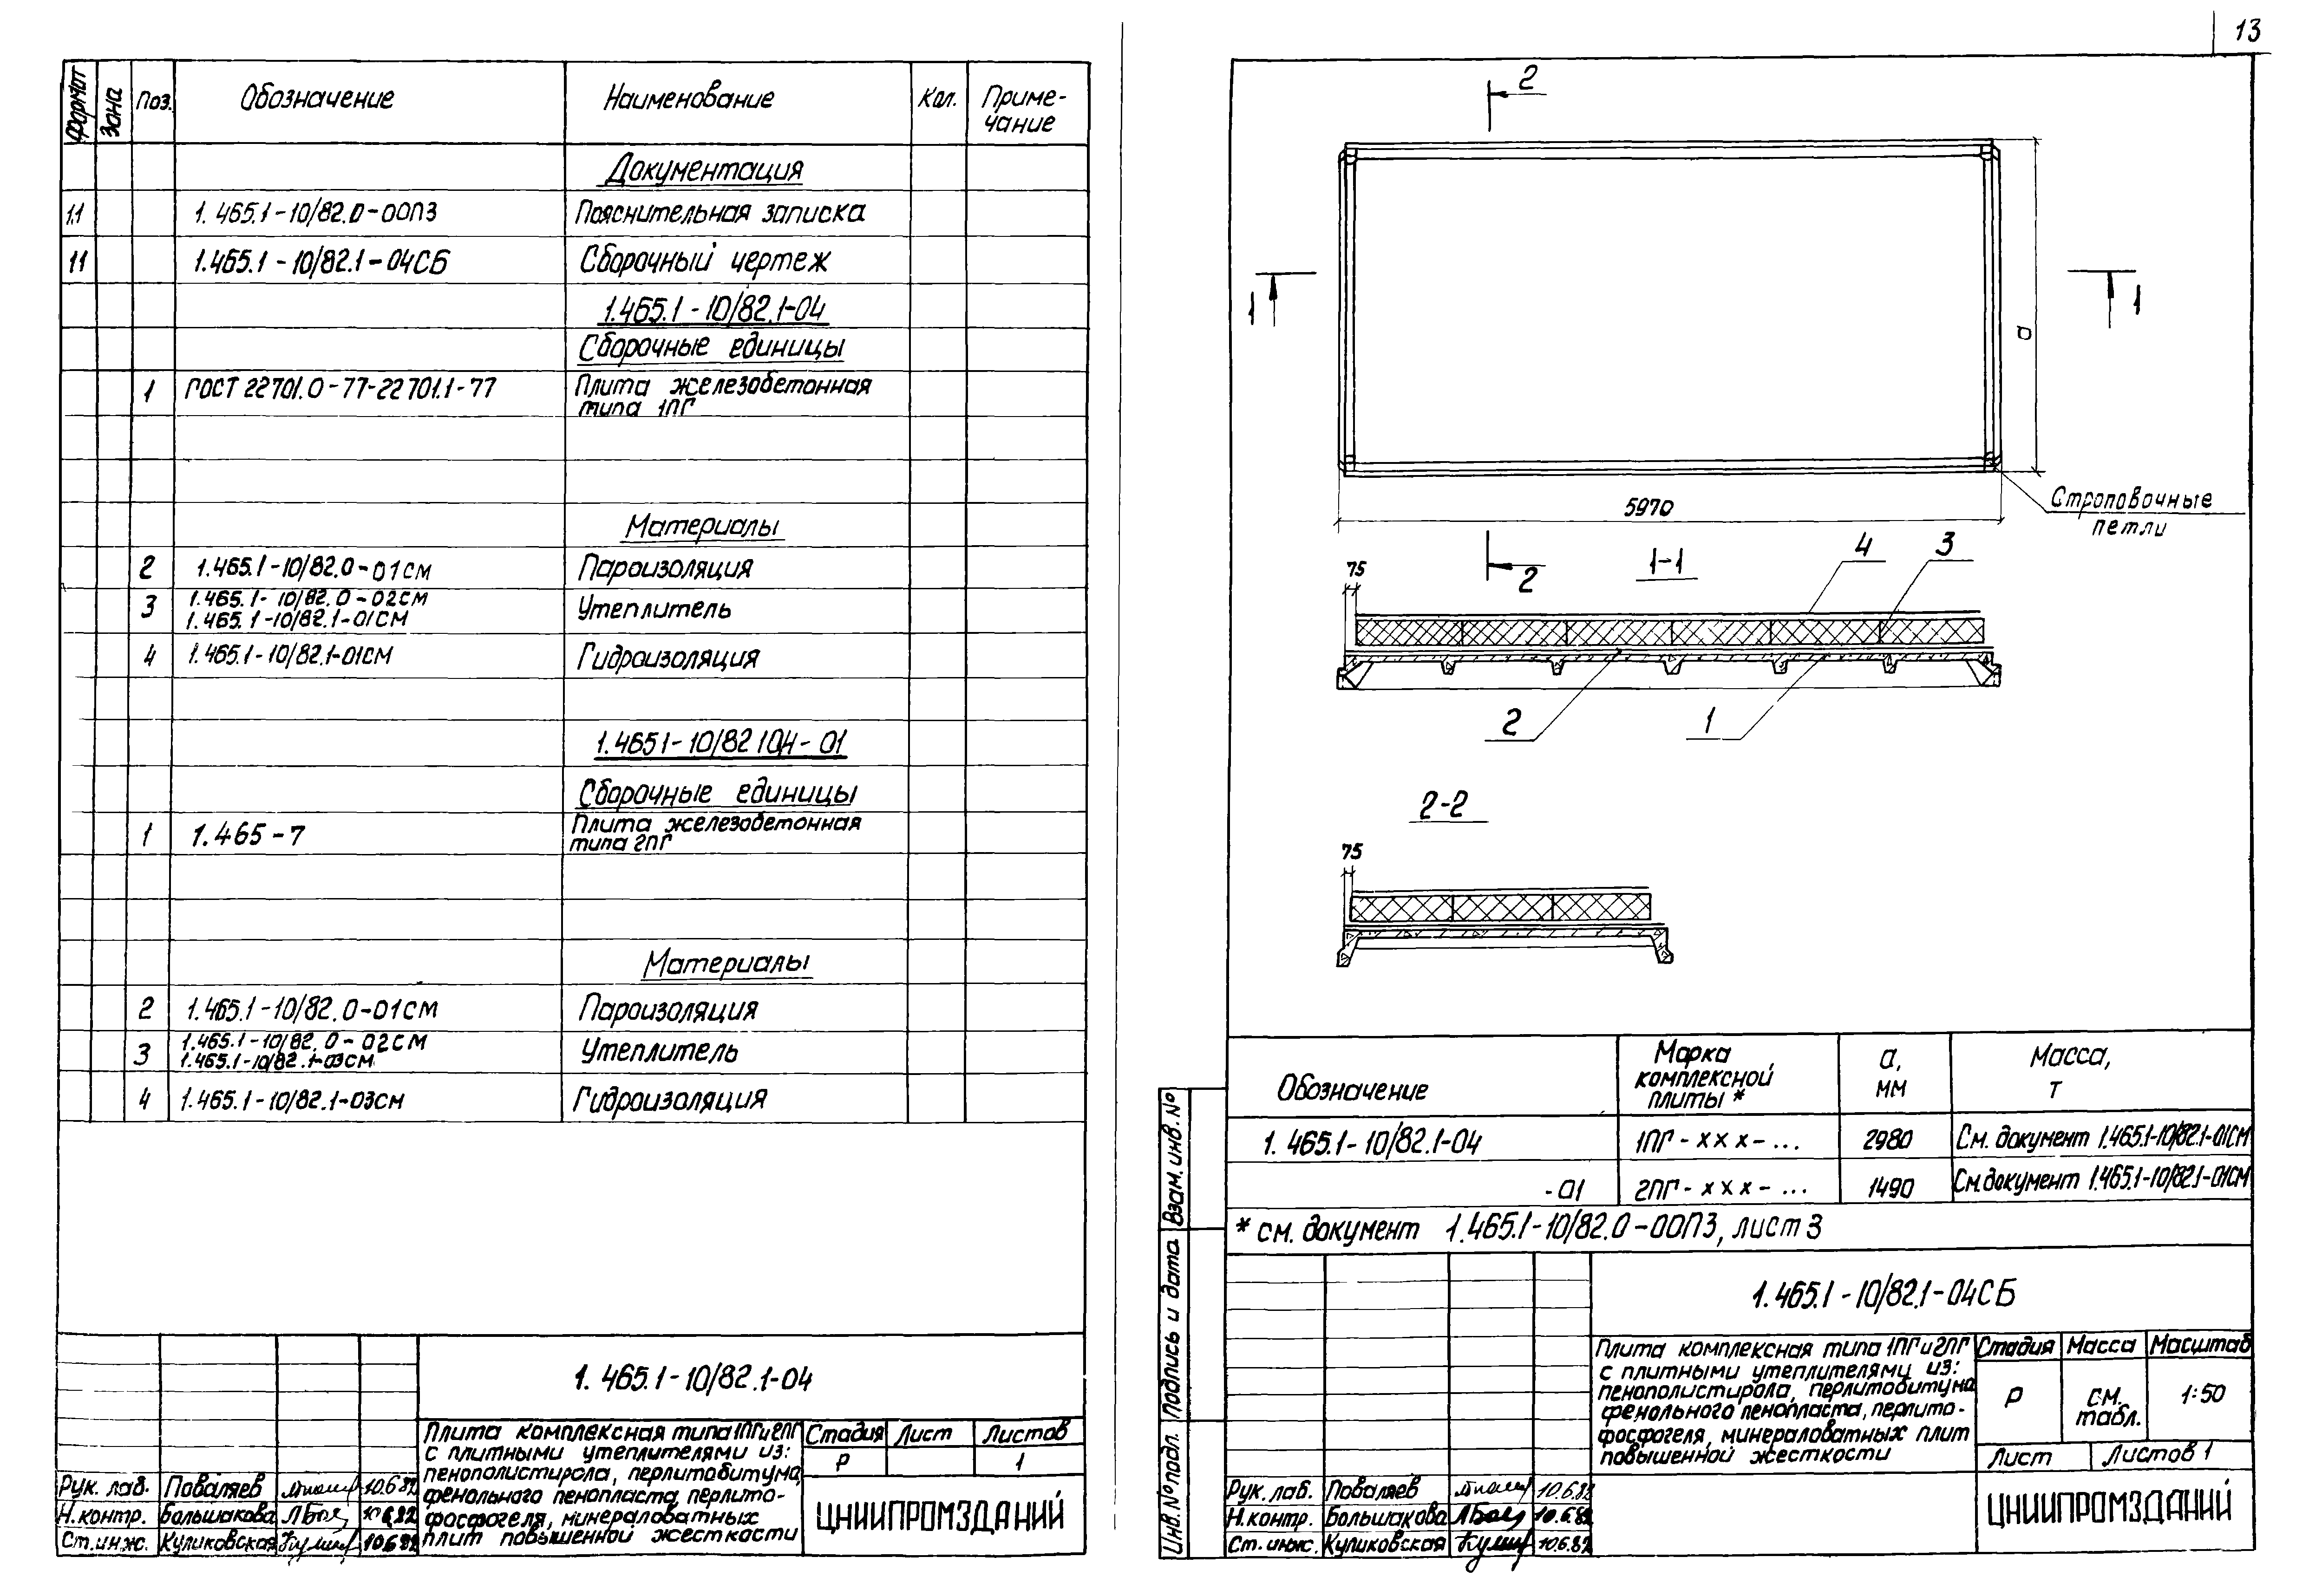 13
формат
Зона
Поз.
Обозначение
Наименование
Кол.
Приме-
чание
Документация
11
1.465.1-10/82.0-00ПЗ
Пояснительная записка
11
1.465.1-10/82.1-04СБ
Сборочный чертеж
1.465.1-10/82.1-04
Сборочные единицы
1
ГОСТ 22701.0-77-22701.1-77
Плита железобетонная
типа 1ПГ
Материалы
2
1.465.1-10/82.0-01СМ
Пароизоляция
3
1.465.1-10/82.0-02СМ
1.465.1-10/82.1-01СМ
Утеплитель
4
1.465.1-10/82.1-01СМ
Гидроизоляция
1.4651-10/82 104-01
Сборочные единицы
1
1.465-7
Плита железобетонная
типа 2ПГ
Материалы
2
1.465.1-10/82.0-01СМ
Пароизоляция
3
1.465.1-10/82.0-02СМ
1.465.1-10/82.1-03СМ
Утеплитель
4
1.465.1-10/82.1-03СМ
Гидроизоляция
1.465.1-10/82.1-04
Плита комплексная типа 1ПГ и 2ПГ
с плитными утеплителями из:
пенополистирола, перлитобитума,
фенольного пенопласта, перлито-
фосфогеля, минераловатных
плит повышенной жесткости
Стадия
Лист
Листов
Р
1
ЦНИИПРОМЗДАНИЙ
Рук. лаб.
Поваляев
10.6.82
Н.контр.
Большакова
10.6.82
Ст.инж.
Куликовская
10.6.82
2
1
1
а
5970
Строповочные
петли
2
1-1
75
4
3
2
1
2-2
75
Обозначение
Марка
комплексной
плиты *
а,
мм
Масса,
т
1.465.1-10/82.1-04
1ПГ-ххх-...
2980
См. документ 1.465.1-10/82.1-01СМ
-01
2ПГ-ххх-...
1490
См.документ 1.465.1-10/82.1-01СМ
* см. документ 1.465.1-10/82.0-00ПЗ, лист 3
1.465.1-10/82.1-04СБ
Плита комплексная типа 1ПГ и 2ПГ
с плитными утеплителями из:
пенополистирола, перлитобитума
фенольного пенопласта, перлито-
фосфогеля, минераловатных плит
повышенной жесткости
Стадия
Масса
Масштаб
Р
см.
табл.
1:50
Лист
Листов 1
ЦНИИПРОМЗДАНИЙ
Рук.лаб.
Поваляев
10.6.82
Н.контр.
Большакова
10.6.82
Ст.инж.
Куликовская
10.6.82
Взам.инв.№
Подпись и дата
Инв.№подл.